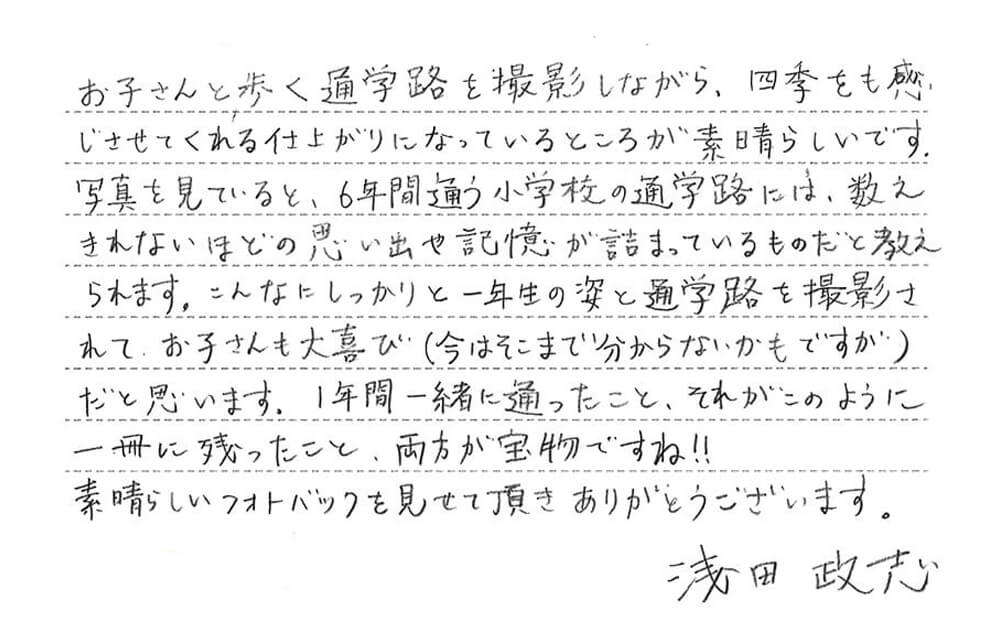 お子さんと歩く通学路を撮影しながら、四季をも感
じさせてくれる仕上がりになっているところが素晴らしいです。
写真を見ていると、6年間通う小学校の通学路には、数え
きれないほどの思い出や記憶が詰まっているものだと教え
られます。こんなにしっかりと一年生の姿と通学路を撮影さ
れて、お子さんも大喜び(今はそこまで分からないかもですが)
だと思います。1年間一緒に通ったこと、それがこのように
一冊に残ったこと、両方が宝物ですね!!
素晴らしいフォトバックを見せて頂きありがとうございます。
浅田 政志